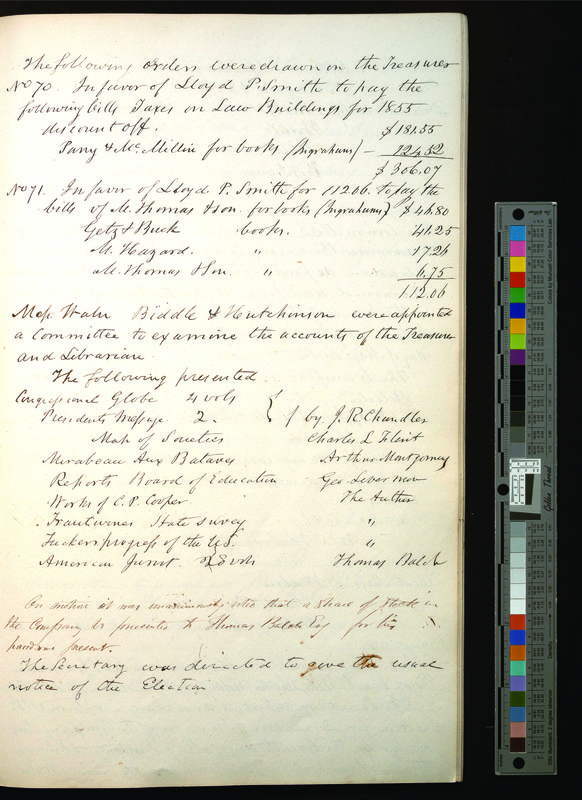 The following orders were drawn on the Treasurer
No 70. In favor of Lloyd P. Smith to pay the
following bills Taxes on Law Buildings for 1855
discount off. $181.55
Parry & McMillin for books (Ingrahams) — 124.52
$306.07
No 71. In favor of Lloyd P. Smith for 112.06. to pay the
bills of M. Thomas & Son. for books (Ingrahams) $46.80
Getz & Buck books. 41.25
M. Hazard. " 17.26
M. Thomas & Son. " 6.75
112.06
Mess. Waln Biddle & Hutchinson were appointed
a Committee to examine the accounts of the Treasurer
and Librarian.
The following presented
Congressional Globe 4 vols
Presidents Message 2. by J. R. Chandler
Map of Societies Charles L Flint
Mirabeau Aux Bataves Arthur Montgomery
Reports Board of Education Geo Livermore
Works of C. P. Cooper The Author
Trautwines State Survey "
Tuckers progress of the U.S. "
American Jurist 28 vols Thomas Balch
On motion it was unanimously voted that a share of stock in
the Company be presented to Thomas Balch Esq for his
handsome present.
The Secretary was directed to give the usual
notice of the Election